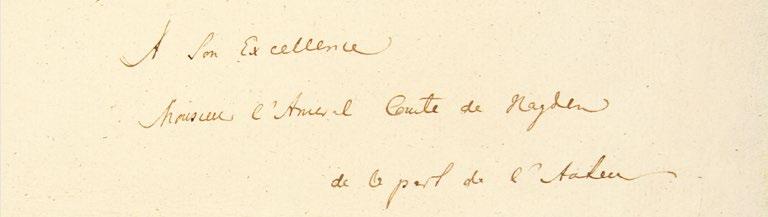 A Son Excellence
Monsieur l'Ameral Comte de Hayden
de la part de l'Auteur